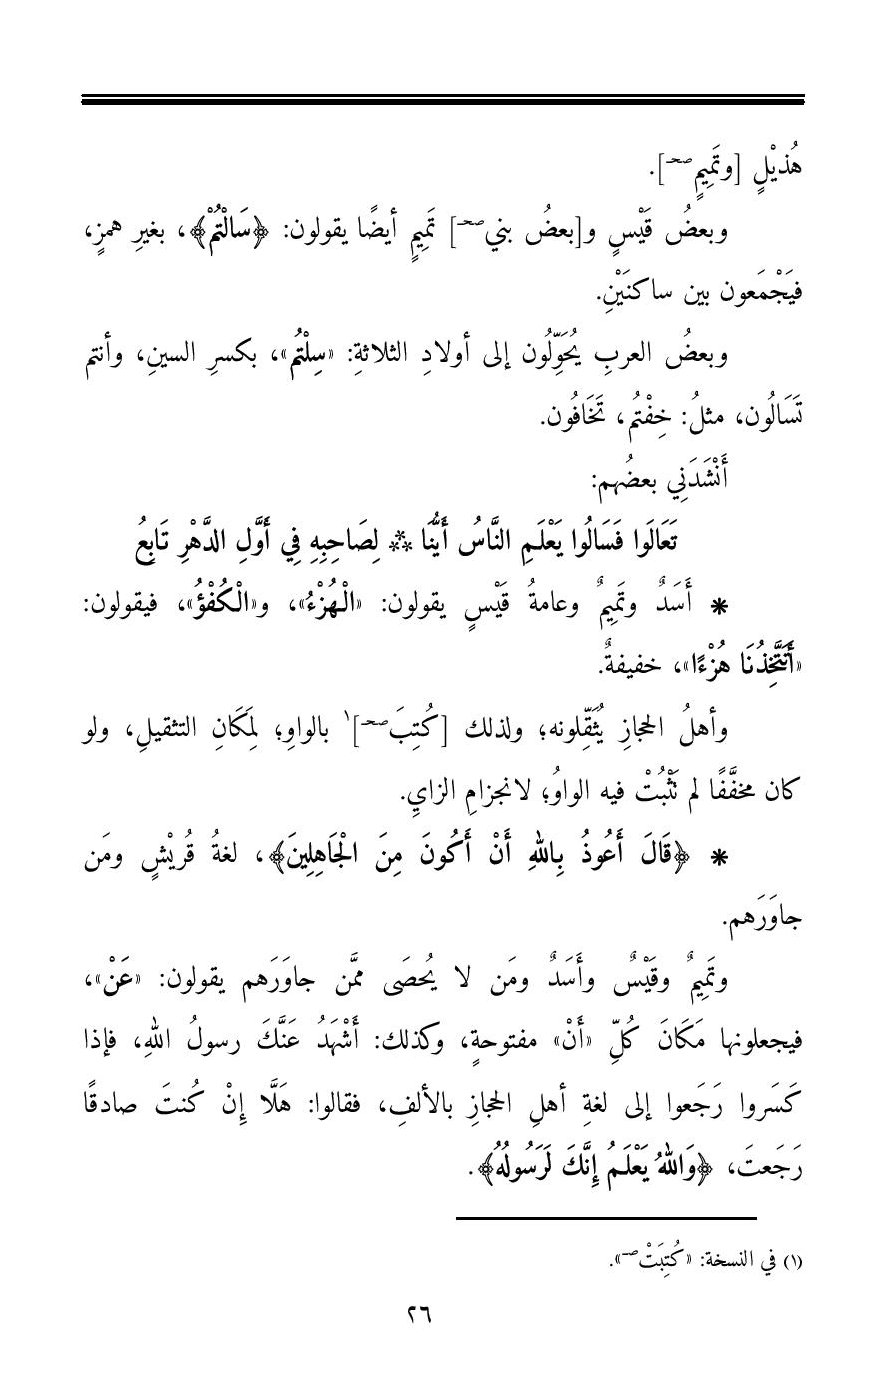 هُذَيْلٍ [وتَمِيمٍ صحـ].
وبعضُ قَيْسٍ و[بعضُ بني صحـ] تَمِيمٍ أيضًا يقولون: ﴿سَالْتُمْ﴾، بغيرِ همزٍ،
فيَجْمَعون بين ساكنَيْنِ.
وبعضُ العربِ يُحَوِّلُون إلى أولادِ الثلاثةِ: «سِلْتُم»، بكسرِ السينِ، وأنتم
تَسَالُون، مثلُ: خِفْتُم، تَخَافُون.
أَنْشَدَنِي بعضُهم:
تَعَالَوا فَسَالُوا يَعْلَمِ النَّاسُ أَيُّنَا ** لِصَاحِبِهِ فِي أَوَّلِ الدَّهْرِ تَابِعُ
* أَسَدٌ وتَمِيمٌ وعامةُ قَيْسٍ يقولون: «الْهُزْءُ»، و«الْكُفْؤُ»، فيقولون:
«أَتَتَّخِذُنَا هُزْءًا»، خفيفةٌ.
وأهلُ الحجازِ يُثَقِّلونه؛ ولذلك [كُتِبَ صحـ]¹ بالواوِ؛ لِمَكَانِ التثقيلِ، ولو
كان مخفَّفًا لم تَثْبُتْ فيه الواوُ؛ لانجزامِ الزايِ.
* ﴿قَالَ أَعُوذُ بِاللهِ أَنْ أَكُونَ مِنَ الْجَاهِلِينَ﴾، لغةُ قُرَيْشٍ ومَن
جاوَرَهم.
وتَمِيمٌ وقَيْسٌ وأَسَدٌ ومَن لا يُحصَى ممَّن جاوَرَهم يقولون: «عَنْ»،
فيجعلونها مَكَانَ كُلِّ «أَنْ» مفتوحةٍ، وكذلك: أَشْهَدُ عَنَّكَ رسولُ اللهِ، فإذا
كَسَروا رَجَعوا إلى لغةِ أهلِ الحجازِ بالألفِ، فقالوا: هَلَّا إِنْ كُنتَ صادقًا
رَجَعتَ، ﴿وَاللهُ يَعْلَمُ إِنَّكَ لَرَسُولُهُ﴾.
(١) في النسخة: «كُتِبَتْ صـ».
٢٦